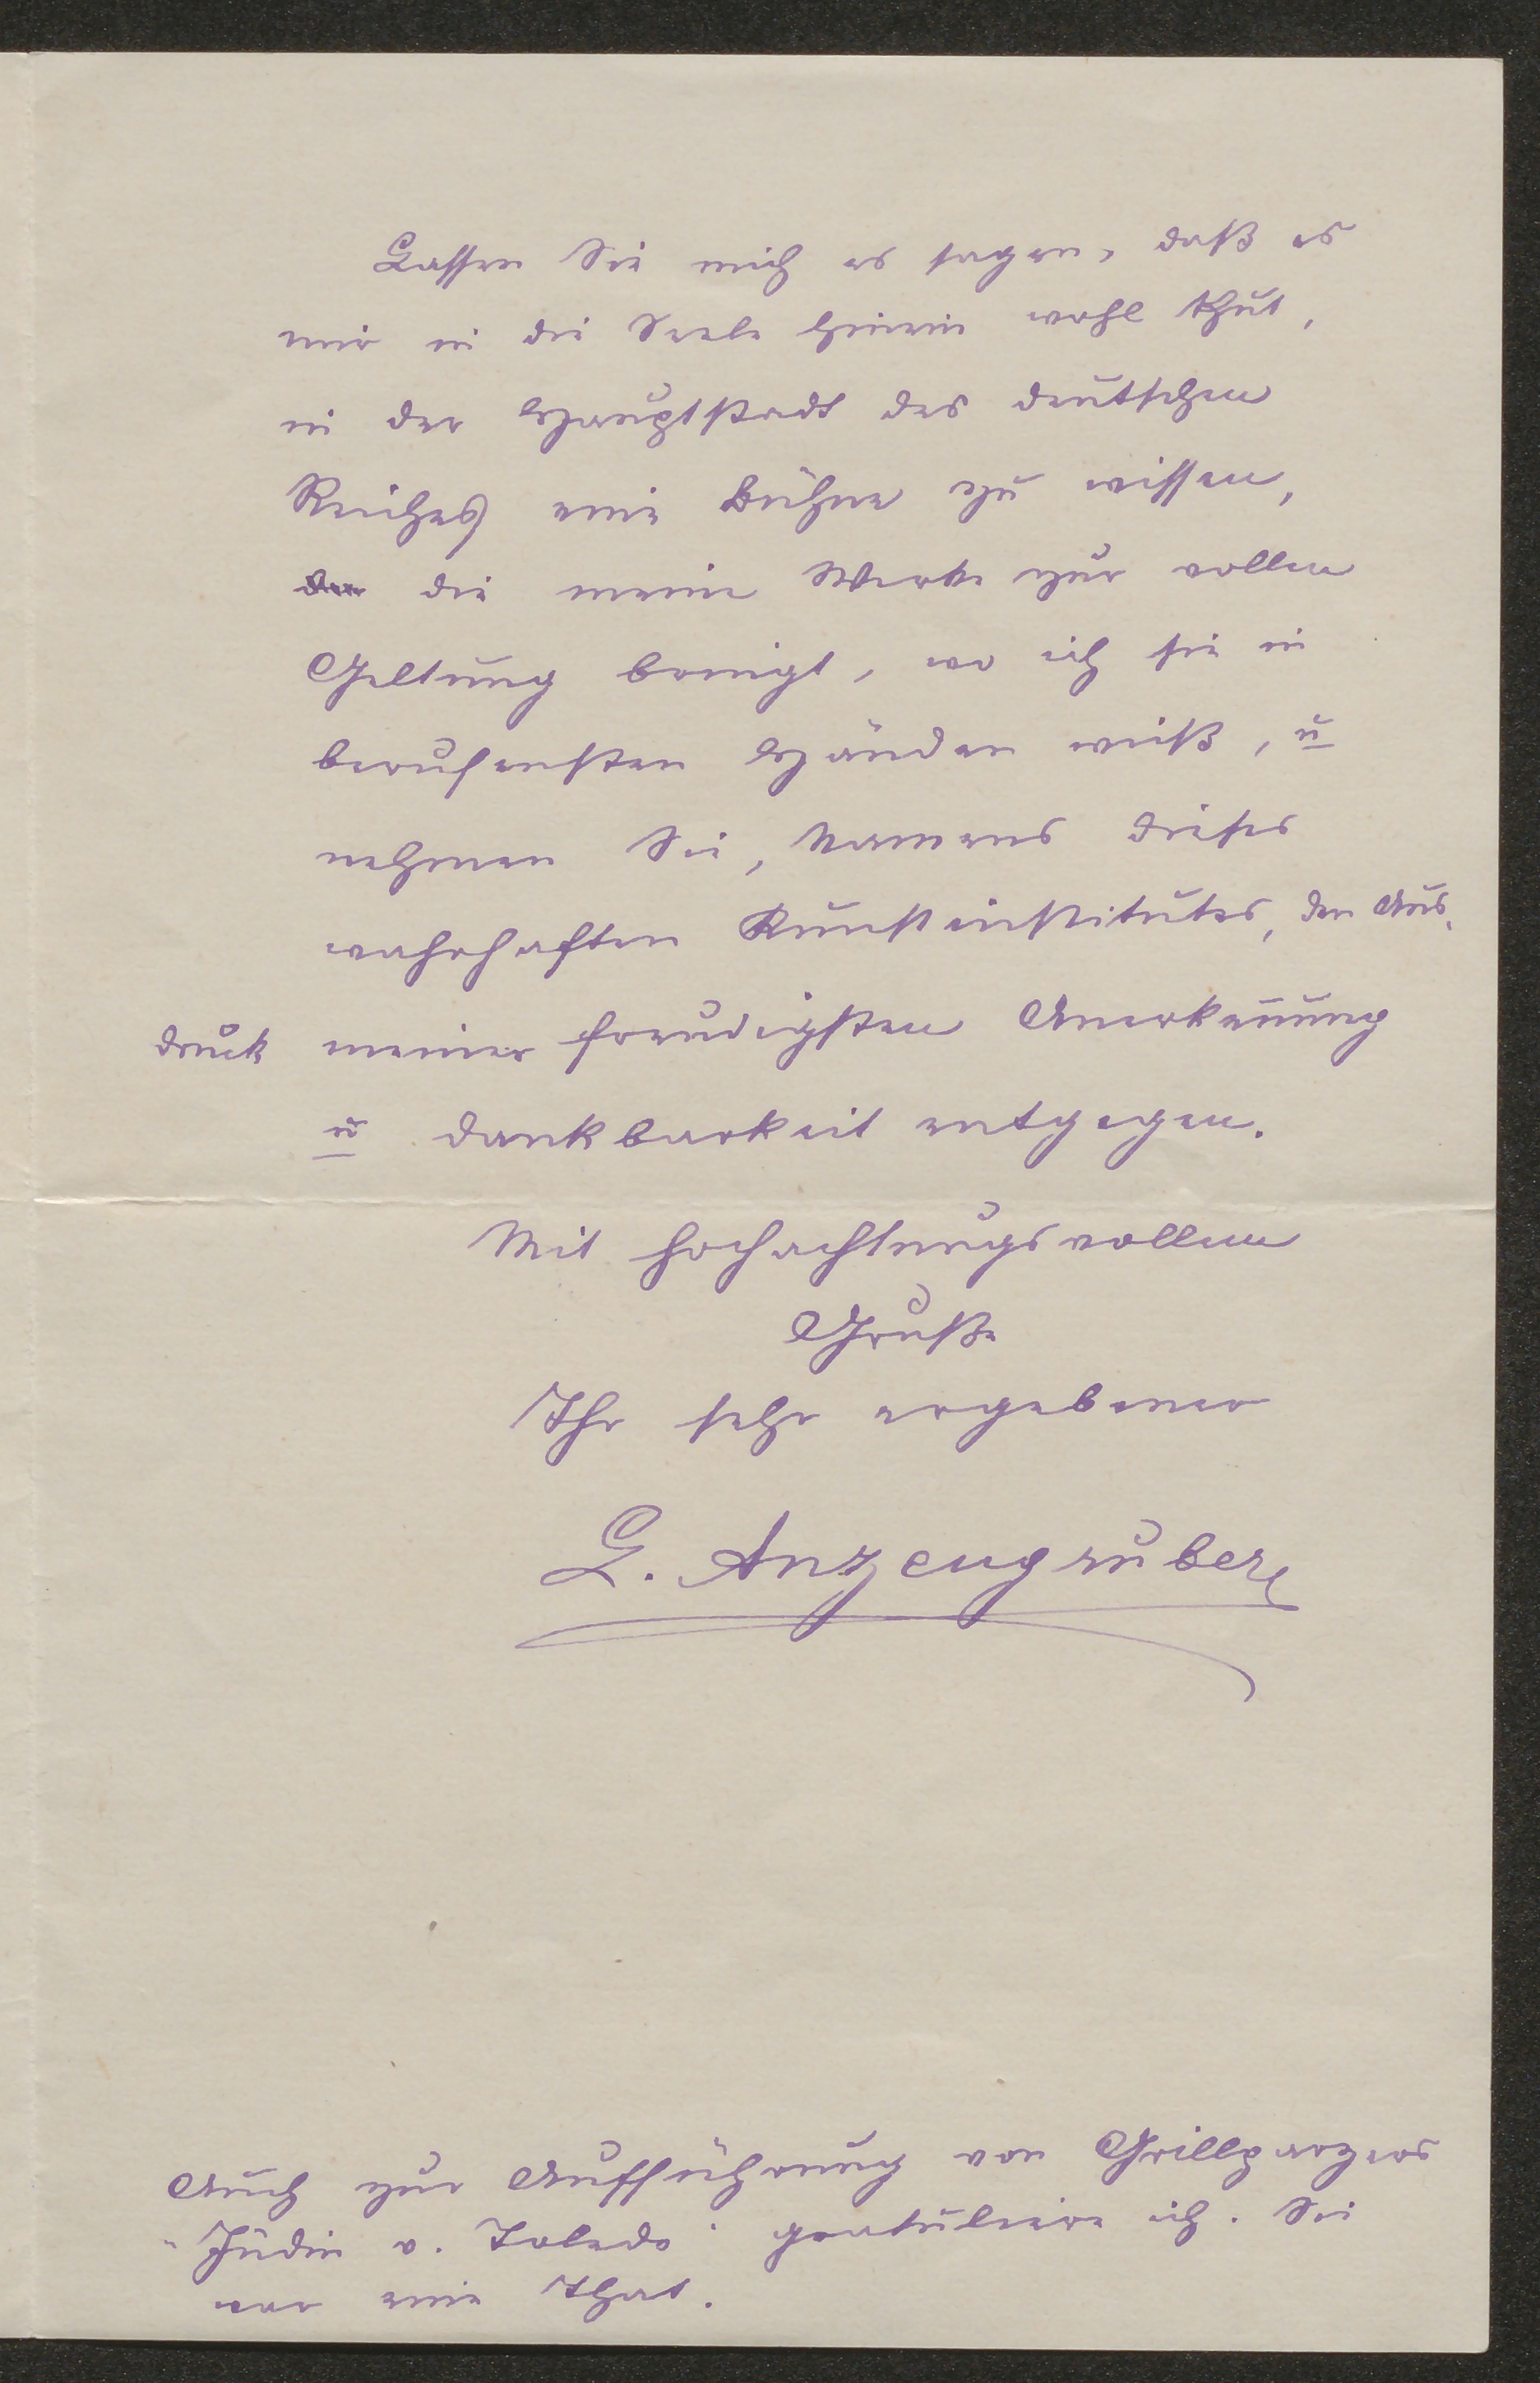 Lassen Sie mich es sagen, daß es
mir in die Seele hinein wohl thut,
in der Hauptstadt des deutschen
Reiches eine Bühne zu wissen,
die meine Werke zur vollen
Geltung bringt, wo ich sie in
berufensten Händen weiß, u
nehmen Sie, Namens dieses
wahrhaften Kunstinstitutes, den Aus-
druck meiner freudigsten Anerkennung
u Dankbarkeit entgegen.
Mit hochachtungsvollem
Gruße
Ihr sehr ergebener
L. Anzengruber
Auch zur Aufführung von Grillparzers
"Jüdin v. Toledo" gratuliere ich. Sie
war eine That.